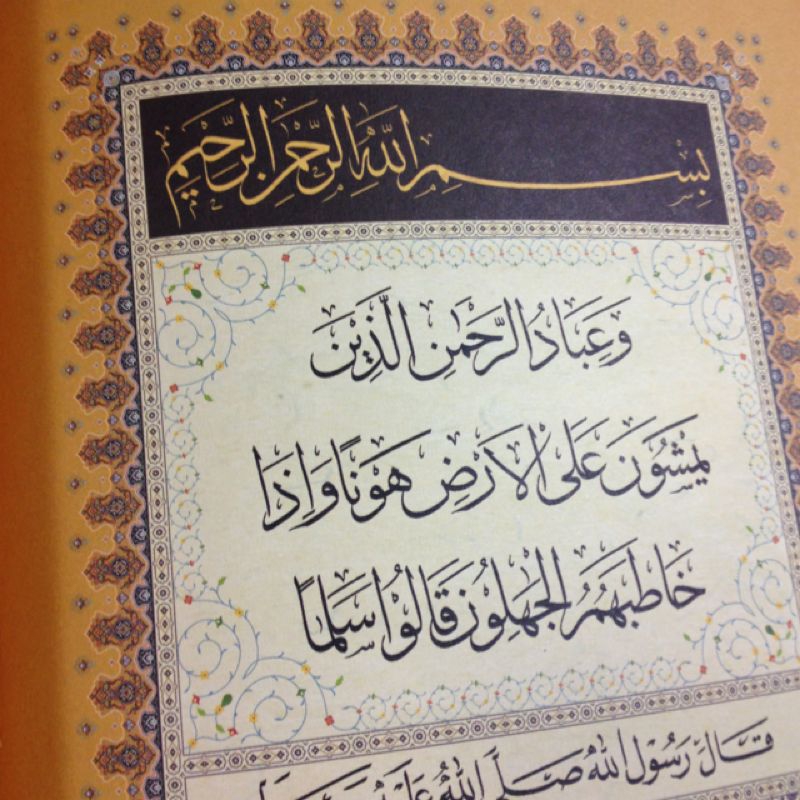 بِسْمِ اللهِ الرَّحْمٰنِ الرَّحِيْمِ
وَعِبَادُ الرَّحْمٰنِ الَّذِيْنَ
يَمْشُوْنَ عَلَى الْاَرْضِ هَوْنًا وَاِذَا
خَاطَبَهُمُ الْجٰهِلُوْنَ قَالُوْا سَلٰمًا
قَالَ رَسُوْلُ اللهِ صَلَّى اللهُ عَلَيْهِ